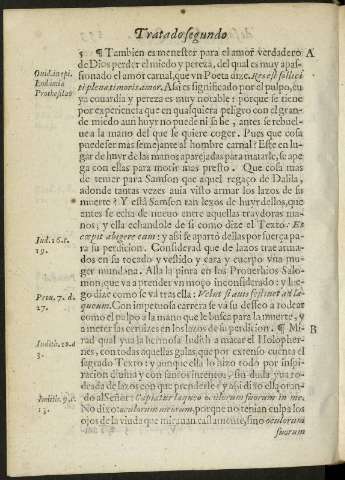 Tratado segundo
5 ¶ Tambien es menester para el amor verdadero A
de Dios perder el miedo y pereza, del qual es muy apas-
sionado el amor carnal, que vn Poeta dize. Res est sollici
ti plena timoris amor. Assi es significado por el pulpo, cu
ya couardia y pereza es muy notable: porque se tiene
por experiencia que en qualquiera peligro con el gran-
de miedo aun huyr no puede ni sabe, antes se rebuel-
ue a la mano del que se quiere coger. Pues que cosa
puede ser mas semejante al hombre carnal? Este en lu-
gar de huyr de las manos aparejadas para matarle, se apega
con ellas para morir mas presto. Que cosa mas
de temer para Samson que aquel regaço de Dalila,
adonde tantas vezes auia visto armar los lazos de su
muerte? Y està Samson tan lexos de huyr dellos, que
antes se echa de nueuo entre aquellas traydoras ma-
nos; y ella echandole de si como dize el Texto: Et
cœpit abigere eum: y assi se apartò dellas por fuerça pa-
ra su perdicion. Considerad que de lazos trae arma-
dos en su tocado y vestido y cara y cuerpo vna mu-
ger mundana. Assi la pinta en los Prouerbios Salo-
mon, que va a prender vn moço inconsiderado: y lue-
go dize como se va tras ella: Velut si auis festinet ad la-
queum. Con impetuosa carrera se va su desseo a rodear
como el pulpo a la mano que le busca para la muerte, y
a meter las ceruizes en los lazos de su perdicion. ¶ Mi- B
rad qual yua la hermosa Iudith a matar el Holopher-
nes, con todas aquellas galas, que por extenso cuenta el
sagrado Texto: y aunque ella lo hizo todo por inspi-
racion diuina y con sanctos intentos, sin duda yua ro-
deada de lazos con que prenderle: y assi dizo ella oran-
do al Señor: Capiatur laqueo oculorum suorum in me.
No dixo: oculorum meorum, porque no tenian culpa los
ojos de la viuda que mirauan castamente, sino oculorum
suorum
Ouid. in epi.
Prothesilao
Iud. 16. c.
19.
Prou. 7. d.
27.
Iudith. 10. a
3.
Iudith. 9. c.
13.